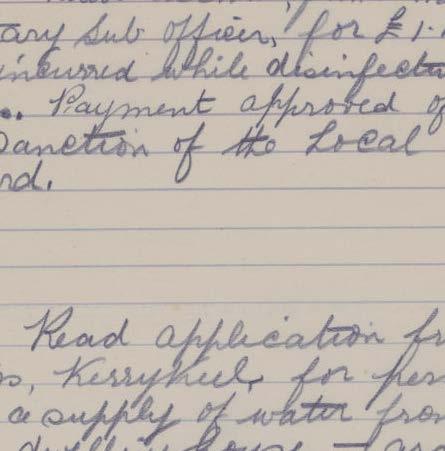 tary Sub officer, for £1.
incurred while disinfectin
Payment approved of
Sanction of the Local
rd.
Read application fr
s, Kerrykeel, for per
a supply of water from
dwelling house